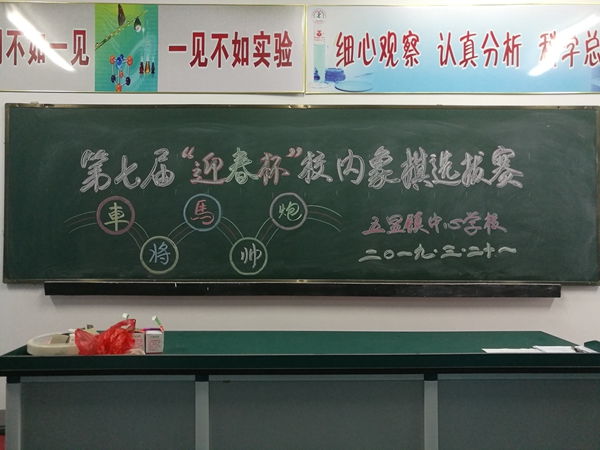 不如一见
一见不如实验
细心观察 认真分析 科学总
第七届“迎春杯”校内象棋选拔赛
車 馬 炮
将 帅
中心学校
二〇一九.三.二十一